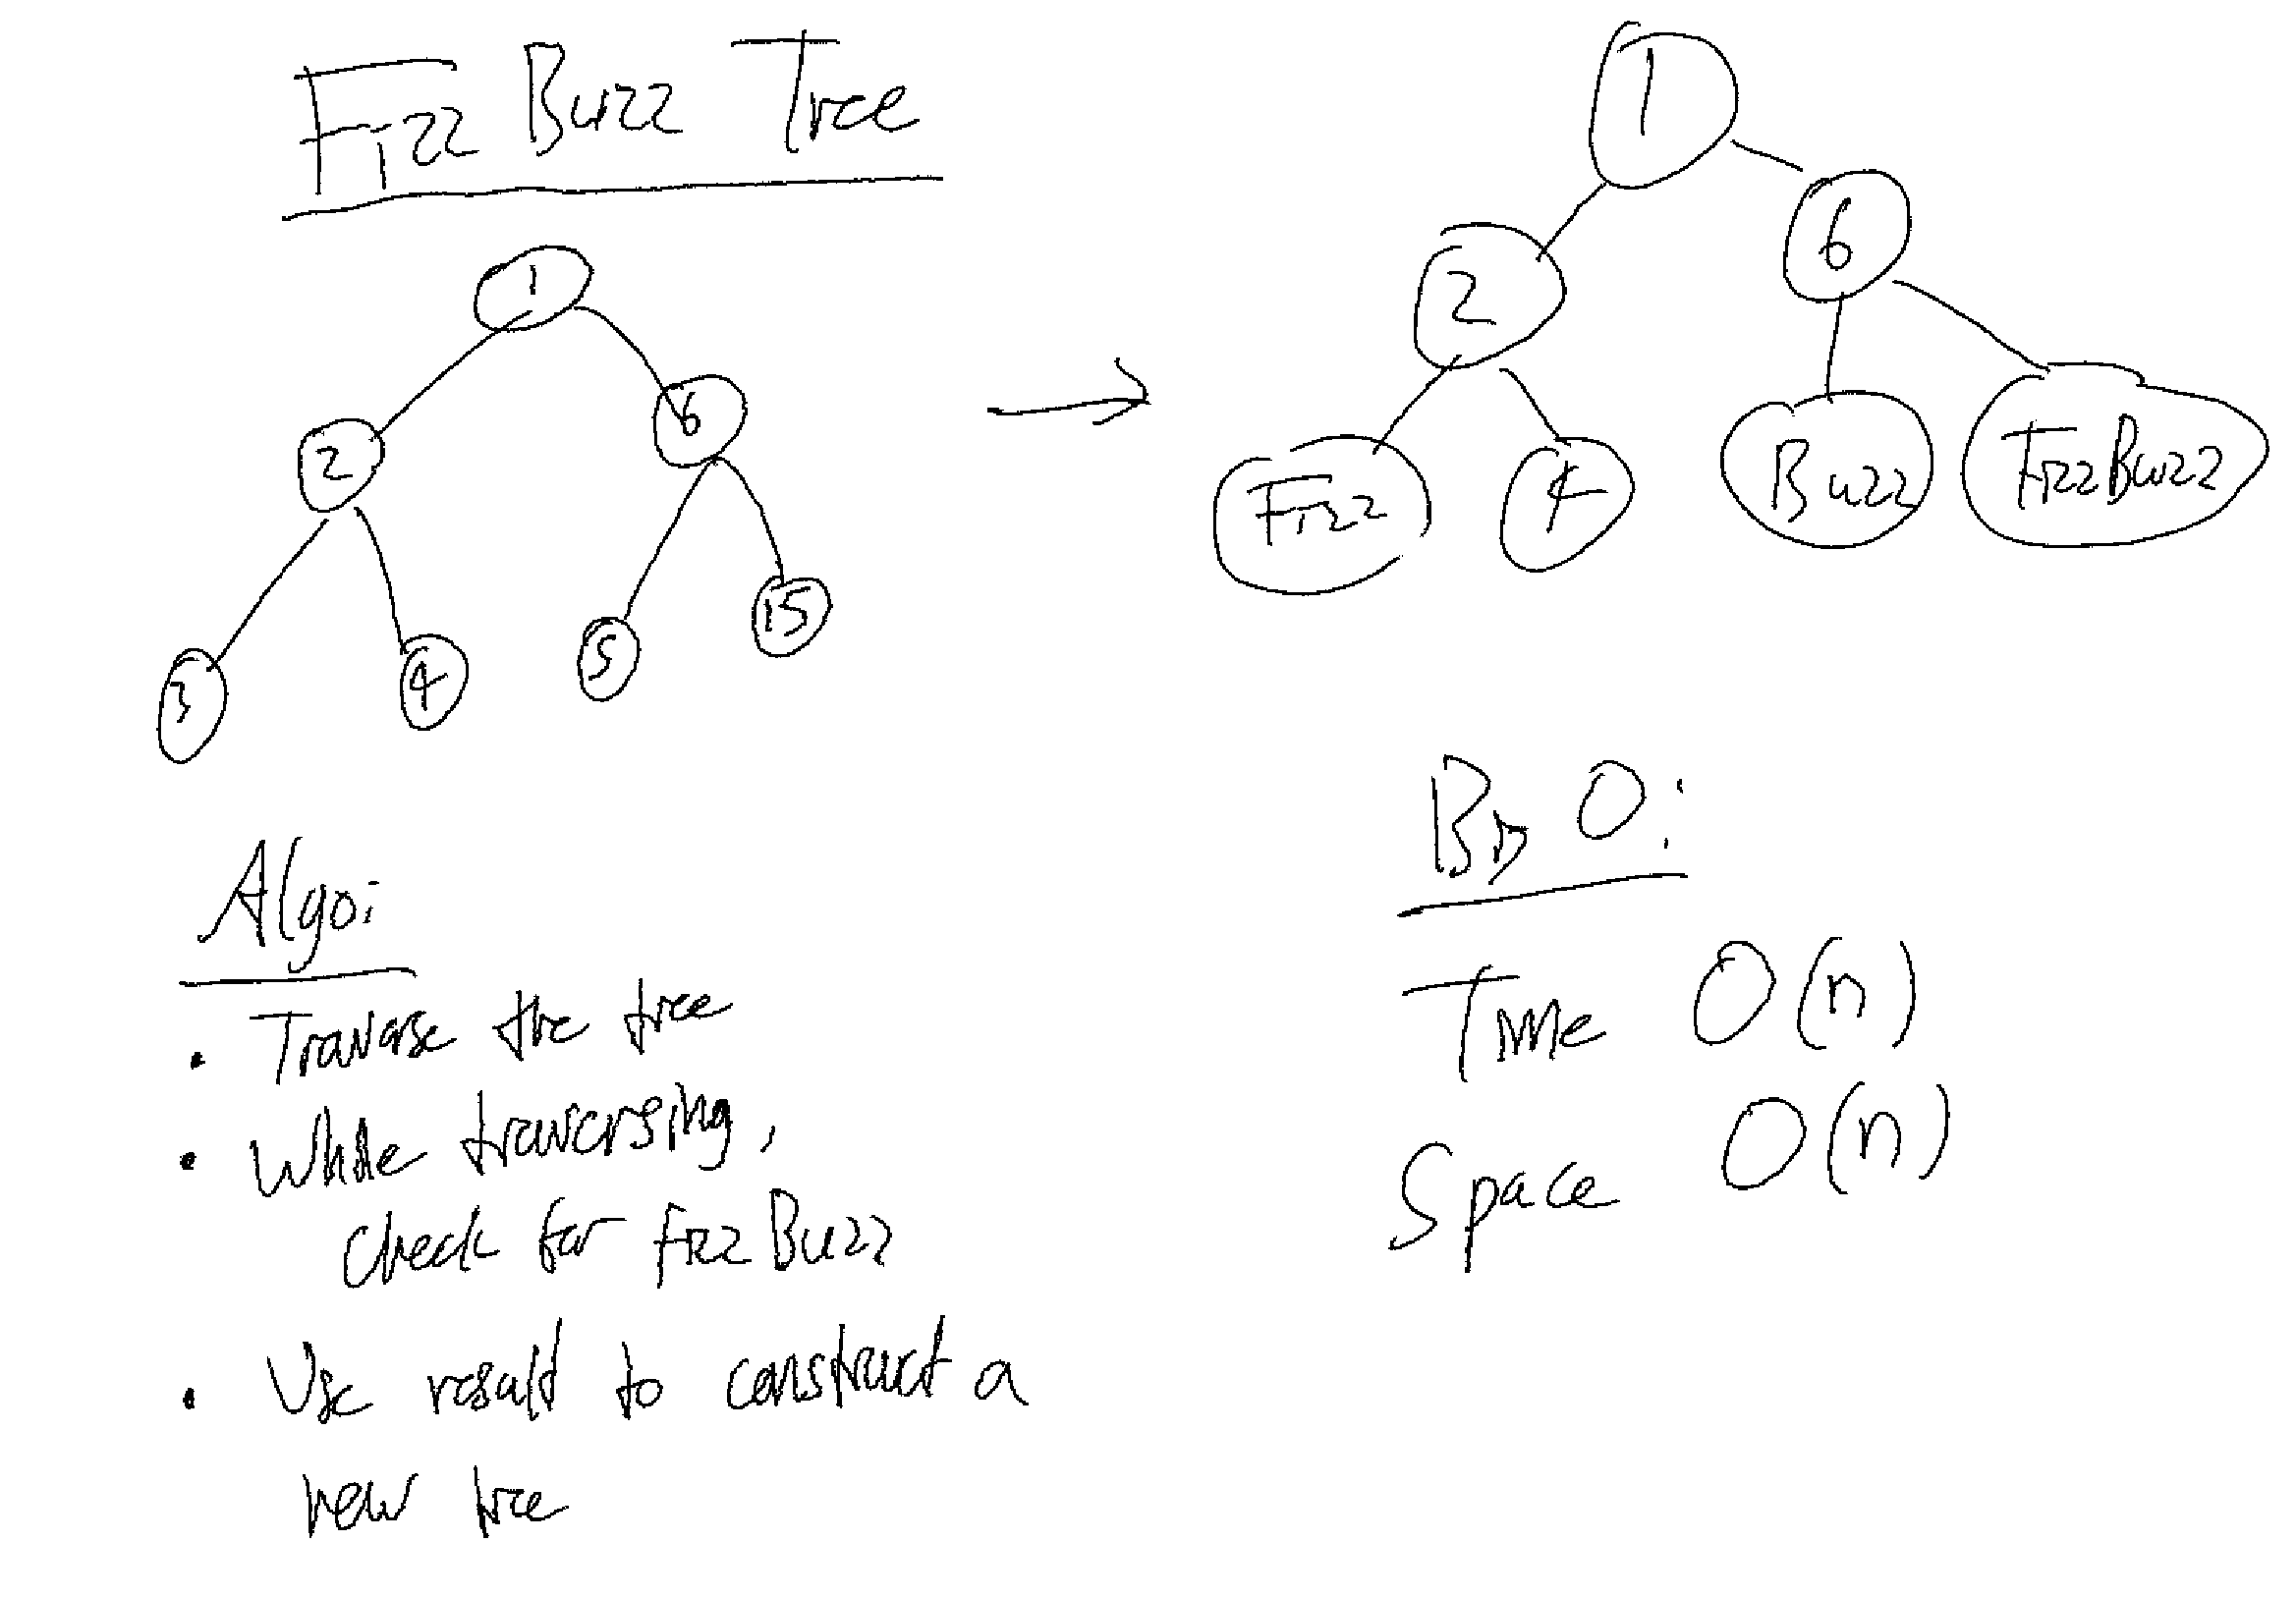 FizzBuzz Tree
1
2
6
3
4
5
15
1
2
6
Fizz
4
Buzz
FizzBuzz
Algo:
• Traverse the tree
• While traversing,
check for FizzBuzz
• Use result to construct a
new tree
Big O:
Time O(n)
Space O(n)